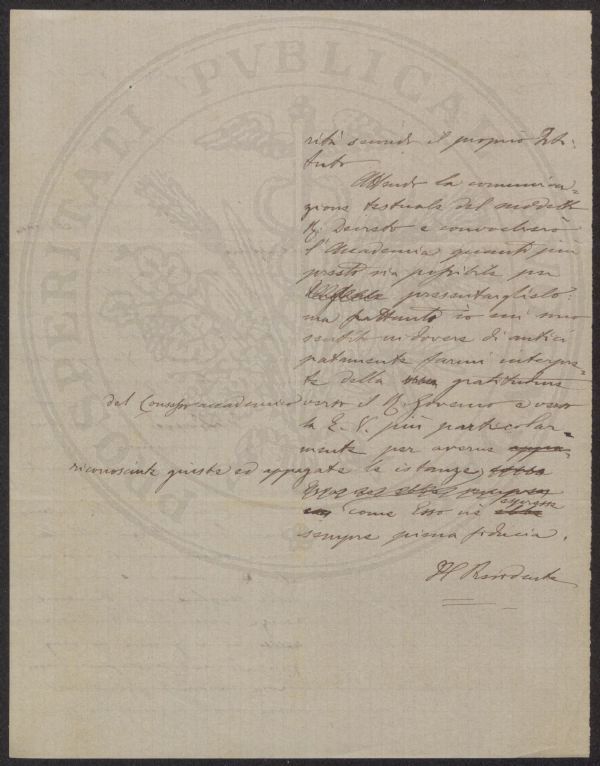 PROSPERITATI PVBLICAE
rità secondo il proprio Isti-
tuto
Attendo la comunica-
zione testuale del suddetto
R. Decreto e convocherò
l'Accademia quanto più
presto sia possibile per
presentarglielo:
ma frattanto io mi sono
sentito in dovere di antici
patamente farmi interpre-
te della gratitudine
del Consesso accademico verso il R. Governo e verso
la E. V. più particolar-
mente per averne
riconosciute giuste ed appagate le istanze,
come Esso n'è espresse
sempre piena fiducia.
Il Presidente